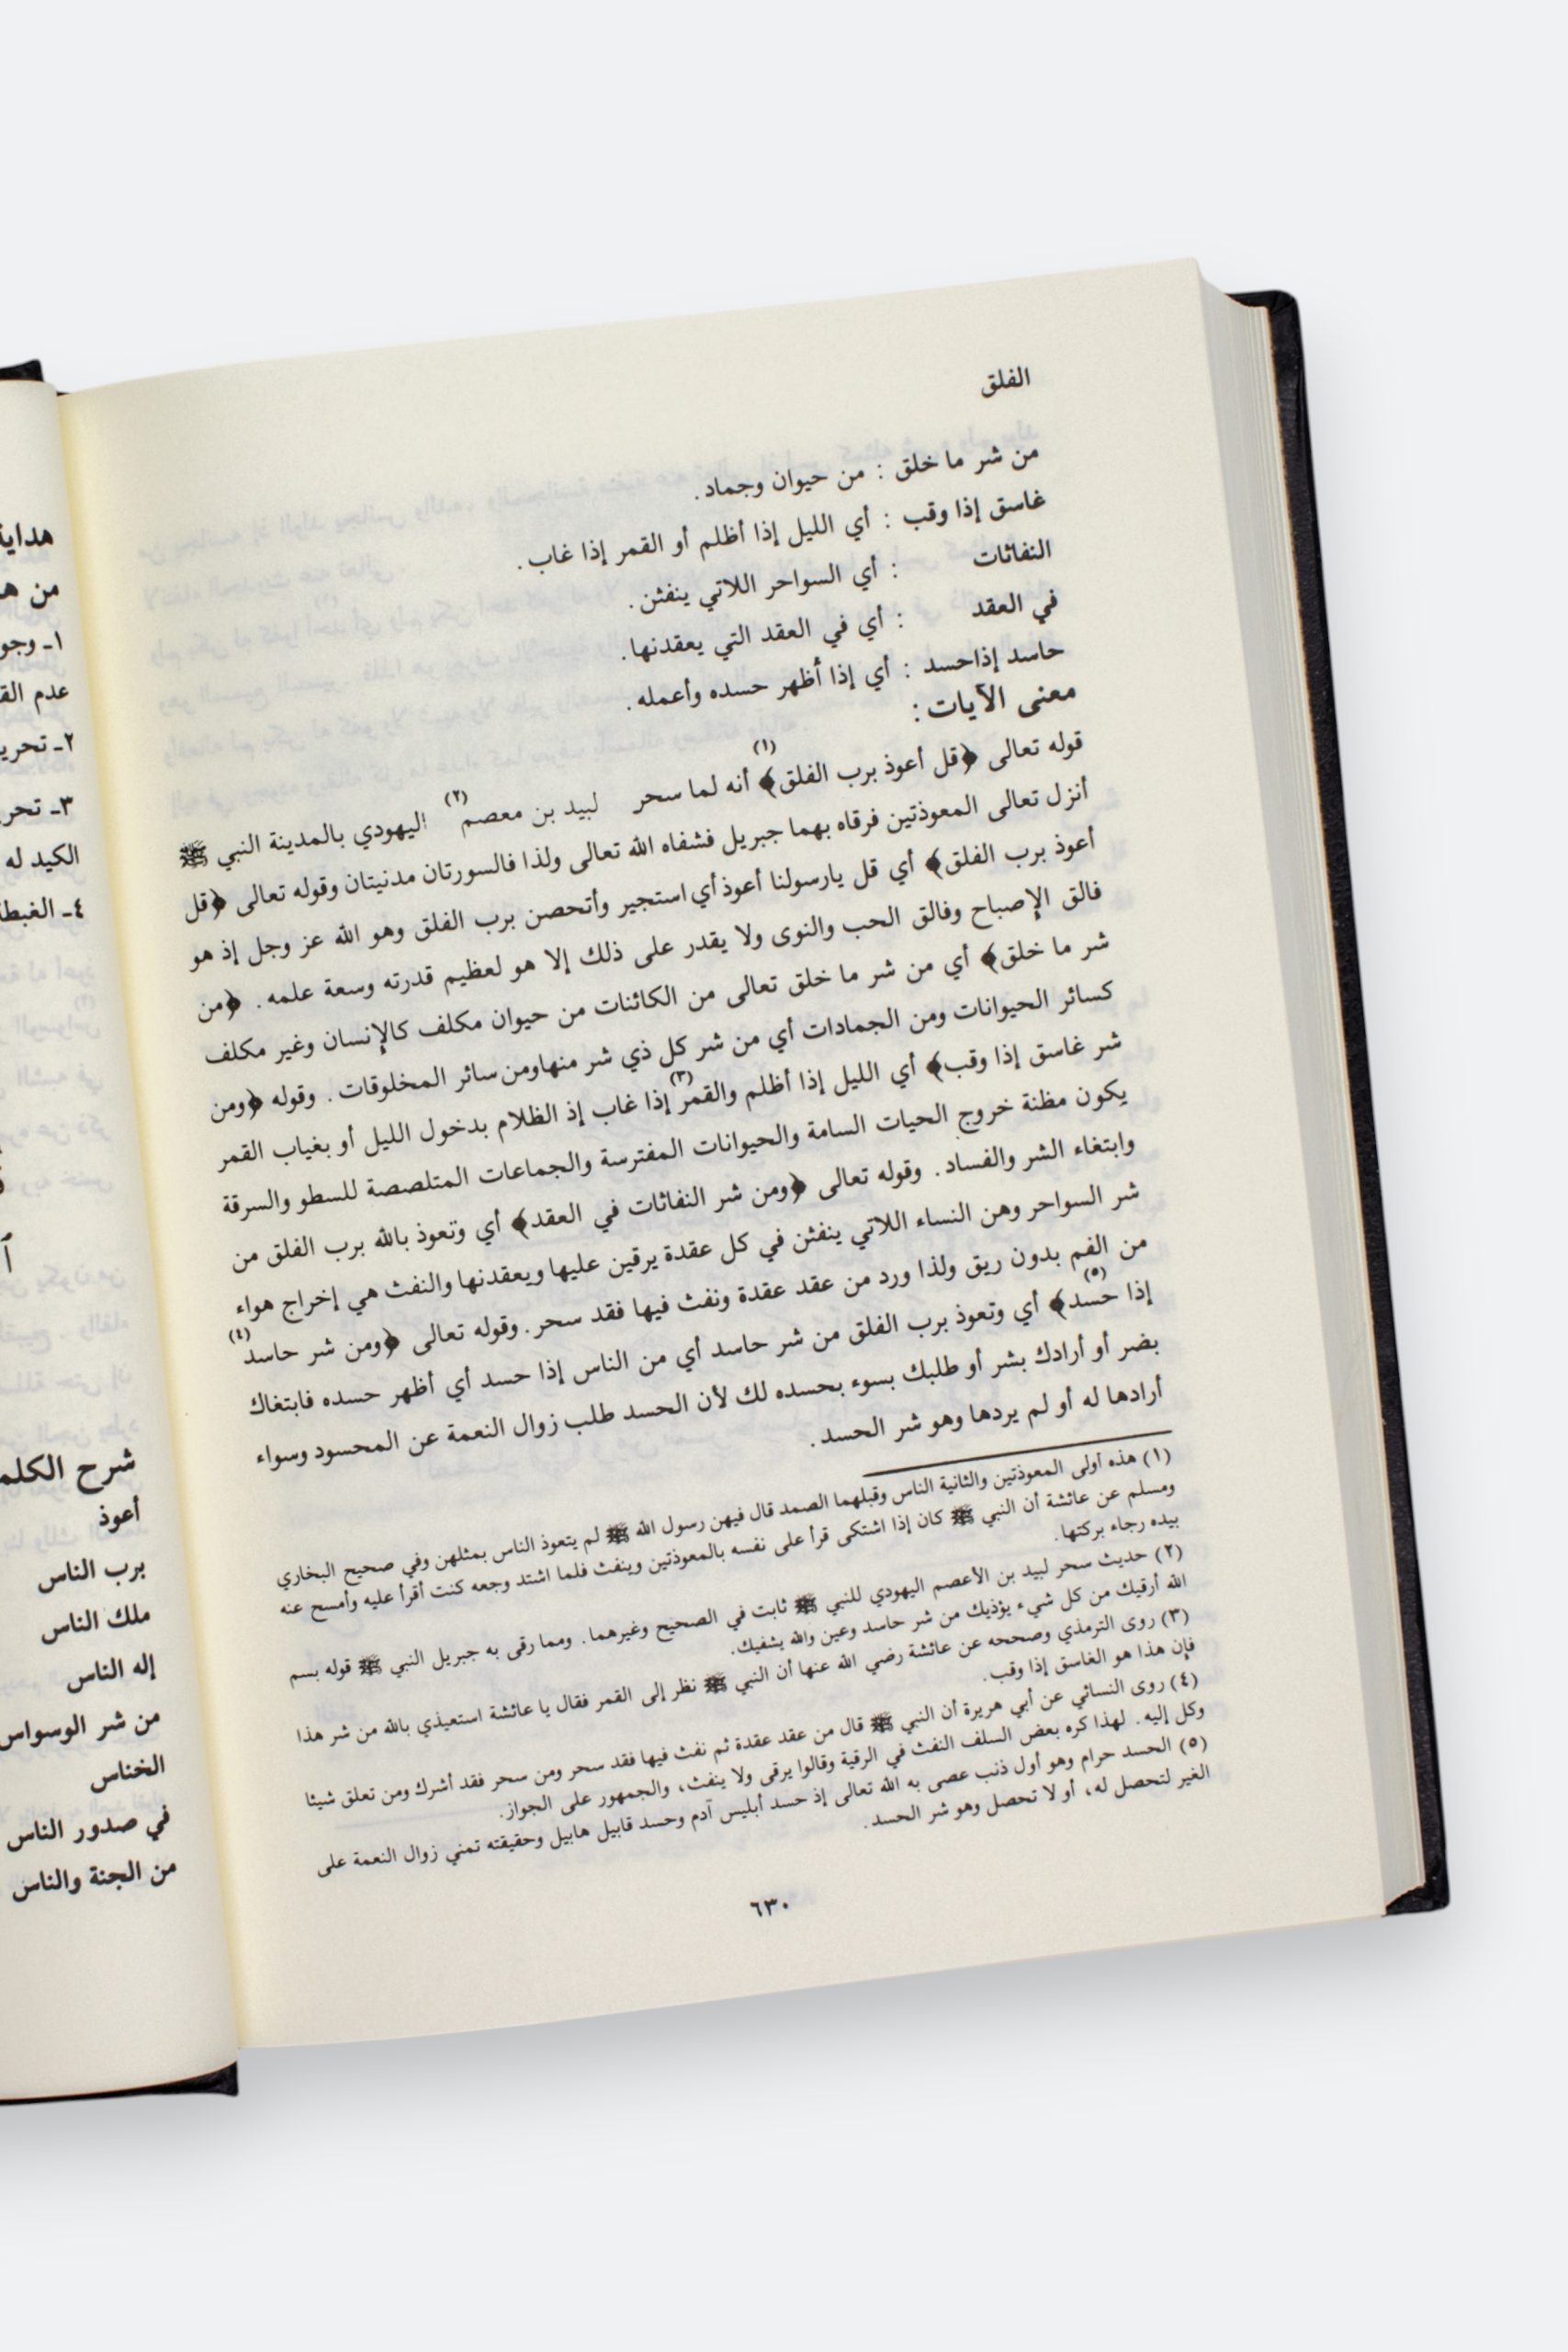 الفلق
من شر ما خلق : من حيوان وجماد.
غاسق إذا وقب : أي الليل إذا أظلم أو القمر إذا غاب.
النفاثات : أي السواحر اللاتي ينفثن.
في العقد : أي في العقد التي يعقدنها.
حاسد إذاحسد : أي إذا أظهر حسده وأعمله.
معنى الآيات:
قوله تعالى ﴿قل أعوذ برب الفلق﴾(١) أنه لما سحر لبيد بن معصم(٢) اليهودي بالمدينة النبي ﷺ
أنزل تعالى المعوذتين فرقاه بهما جبريل فشفاه الله تعالى ولذا فالسورتان مدنيتان وقوله تعالى ﴿قل
أعوذ برب الفلق﴾ أي قل يارسولنا أعوذ أي استجير وأتحصن برب الفلق وهو الله عز وجل إذ هو
فالق الإصباح وفالق الحب والنوى ولا يقدر على ذلك إلا هو لعظيم قدرته وسعة علمه. ﴿من
شر ما خلق﴾ أي من شر ما خلق تعالى من الكائنات من حيوان مكلف كالإنسان وغير مكلف
كسائر الحيوانات ومن الجمادات أي من شر كل ذي شر منها ومن سائر المخلوقات. وقوله ﴿ومن
شر غاسق إذا وقب﴾ أي الليل إذا أظلم والقمر(٣) إذا غاب إذ الظلام بدخول الليل أو بغياب القمر
يكون مظنة خروج الحيات السامة والحيوانات المفترسة والجماعات المتلصصة للسطو والسرقة
وابتغاء الشر والفساد. وقوله تعالى ﴿ومن شر النفاثات في العقد﴾ أي وتعوذ بالله برب الفلق من
شر السواحر وهن النساء اللاتي ينفثن في كل عقدة يرقين عليها ويعقدنها والنفث هي إخراج هواء
من الفم بدون ريق ولذا ورد من عقد عقدة ونفث فيها فقد سحر. وقوله تعالى ﴿ومن شر حاسد(٤)
إذا حسد(٥)﴾ أي وتعوذ برب الفلق من شر حاسد أي من الناس إذا حسد أي أظهر حسده فابتغاك
بضر أو أرادك بشر أو طلبك بسوء بحسده لك لأن الحسد طلب زوال النعمة عن المحسود وسواء
أرادها له أو لم يردها وهو شر الحسد.
(١) هذه أولى المعوذتين والثانية الناس وقبلهما الصمد قال فيهن رسول الله ﷺ لم يتعوذ الناس بمثلهن وفي صحيح البخاري
ومسلم عن عائشة أن النبي ﷺ كان إذا اشتكى قرأ على نفسه بالمعوذتين وينفث فلما اشتد وجعه كنت أقرأ عليه وأمسح عنه
بيده رجاء بركتها.
(٢) حديث سحر لبيد بن الأعصم اليهودي للنبي ﷺ ثابت في الصحيح وغيرهما. ومما رقى به جبريل النبي ﷺ قوله بسم
الله أرقيك من كل شيء يؤذيك من شر حاسد وعين والله يشفيك.
(٣) روى الترمذي وصححه عن عائشة رضي الله عنها أن النبي ﷺ نظر إلى القمر فقال يا عائشة استعيذي بالله من شر هذا
فإن هذا هو الغاسق إذا وقب.
(٤) روى النسائي عن أبي هريرة أن النبي ﷺ قال من عقد عقدة ثم نفث فيها فقد سحر ومن سحر فقد أشرك ومن تعلق شيئا
وكل إليه. لهذا كره بعض السلف النفث في الرقية وقالوا يرقى ولا ينفث، والجمهور على الجواز.
(٥) الحسد حرام وهو أول ذنب عصى به الله تعالى إذ حسد أبليس آدم وحسد قابيل هابيل وحقيقته تمني زوال النعمة على
الغير لتحصل له، أو لا تحصل وهو شر الحسد.
٦٣٠
هداية
من
١ـ وجو
عدم
٢ـ تحري
٣ـ تحر
الكيد له
٤ـ الغبطة
شرح الكلم
أعوذ
برب الناس
ملك الناس
إله الناس
من شر الوسواس
الخناس
في صدور الناس
من الجنة والناس